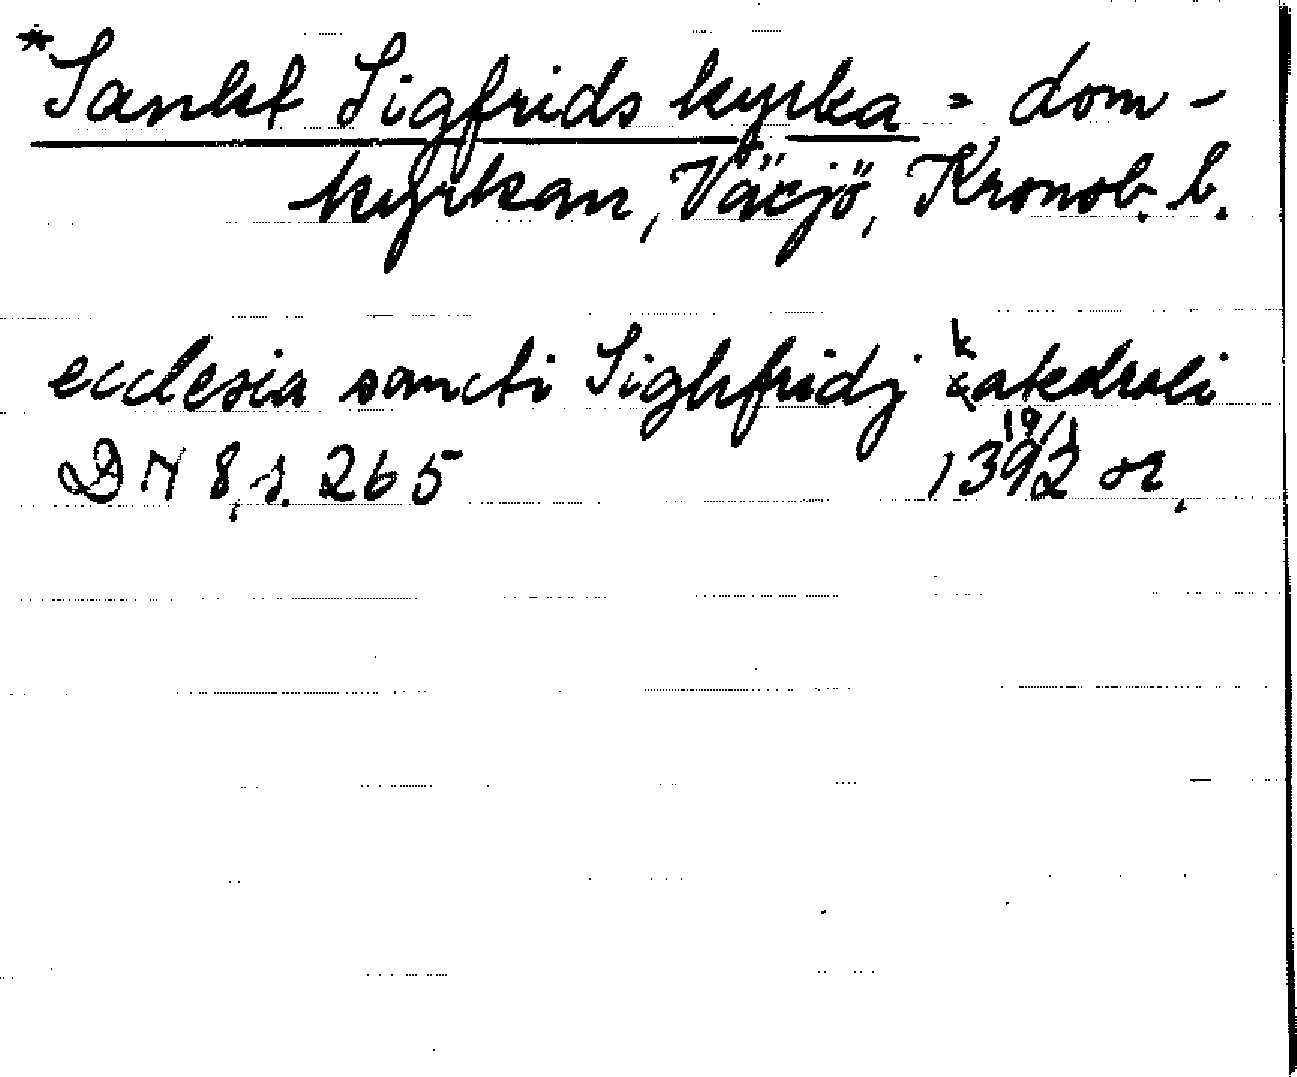 *Sankt Sigfrids kyrka = dom-
kyrkan, Växjö, Kronob. l.
ecclesia sancti Sighfridj katedrali
19/1
DN 8, s. 265 1392 or.